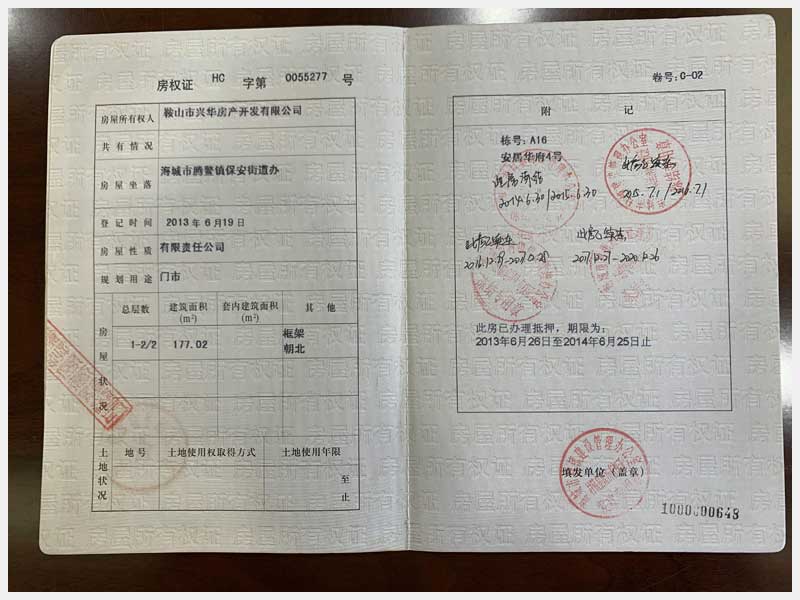 房权证 HC 字第 0055277 号
房屋所有权人 鞍山市兴华房产开发有限公司
共有情况
房屋坐落 海城市腾鳌镇保安街道办
登记时间 2013 年 6月19日
房屋性质 有限责任公司
规划用途 门市
房屋状况
总层数 建筑面积(m²) 套内建筑面积(m²) 其他
1-2/2 177.02 框架
朝北
土地状况
地号 土地使用权取得方式 土地使用年限
至
止
卷号: C-02
附记
栋号: A16
安居华府4号
2014.6.30/2015.6.30
2015.7.1/2016.7.1
此房已办理抵押，期限为:
2013年6月26日至2014年6月25日止
填发单位（盖章）
1000000648